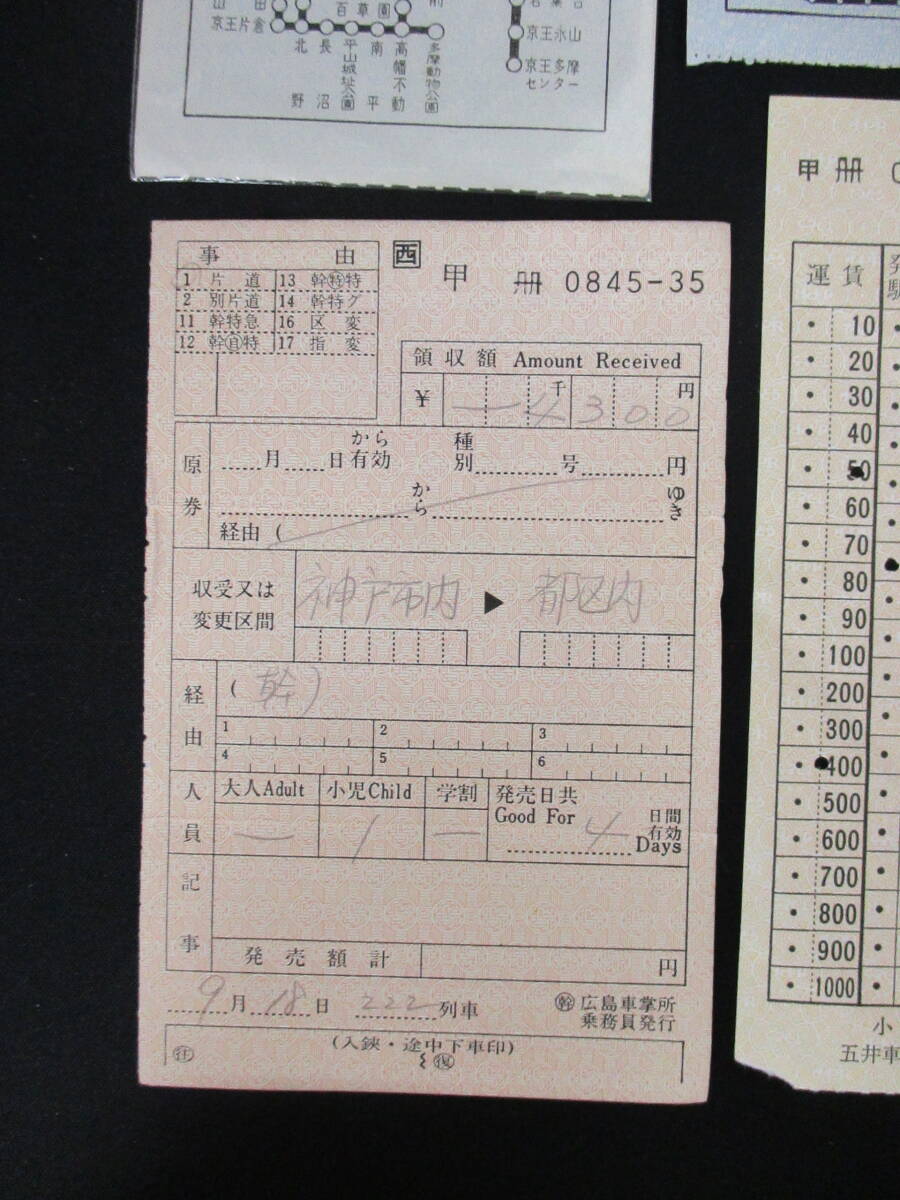 百草園
京王片倉
北野
長沼
平山城址公園
南平
高幡不動
多摩動物公園
京王永山
京王多摩
センター
事由
1 片道 13 幹特特
2 別片道 14 幹特グ
11 幹特急 16 区変
12 幹自特 17 指変
西
甲 册 0845-35
領収額 Amount Received
千 円
¥ 一 4 3 0 0
原券
月 日から有効 種別 号 円
から ゆき
経由 (
収受又は
変更区間
神戸市内 ▶ 都区内
経由
(幹)
1 2 3
4 5 6
人員
大人Adult 小児Child 学割 発売日共
Good For 4 日間有効
Days
一 1 一
記事
発売額計 円
9月18日 222列車
幹 広島車掌所
乗務員発行
(入鋏・途中下車印)
往 復
甲 册
運賃
10
20
30
40
50
60
70
80
90
100
200
300
400
500
600
700
800
900
1000
小
五井車